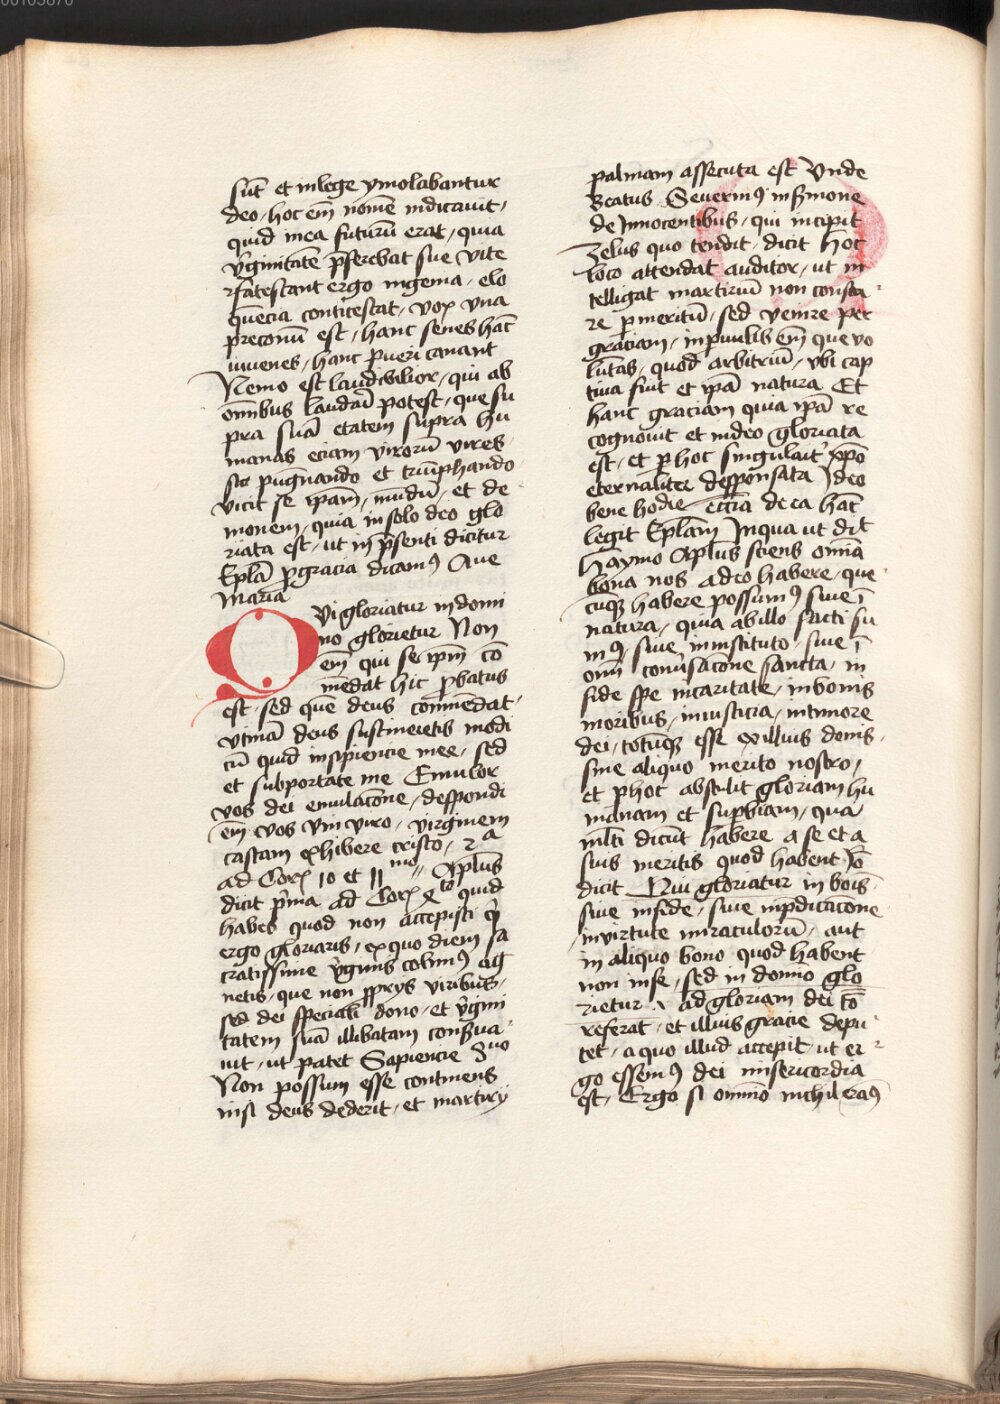 00103870
sūt et in lege ymolabantur
deo, hoc em̄ nomē indicauit,
quid mea futurū erat, quia
v̾ginitatē p̄ferebat sue vite
Fatescant ergo ingenia, elo
quēcia conticescat, vox vna
preconiū est, hanc senes hāc
iuuenes, hanc pueri canant
Nemo est laudabilior, qui ab
om̄ibus laudari potest, que su
pra suā etatem supra hu
manas eciam virorū vires
sic puḡnando et triūphando
vicit se ip̄am, mūdū, et de
monem, quia in solo deo glo
riata est, ut in p̄senti dicitur
Ep̄la ꝓ gracia dicamꝰ Aue
Maria
Qvi gloriatur in domi
no glorietur Non
em̄ qui se ip̄m cō
mēdat hic ꝓbatus
est, sed quē deus commēdat,
vtinā deus sustineretis modi
cū quid insipiencie mee, sed
et subportate me Emulor
vos dei emulacōne, despondi
em̄ vos vni viro, virginem
castam exhibere cristo, 2ᵃ
ad Corꝝ 10 et 11ᵐᵒ, Ap̄lus
dicit p̄ma ad Corꝝ 4ᵗᵒ quid
habes quod non accepisti q̄
ergo gloriaris, ex quo diem sa
cratissime v̾ginis colimꝰ aḡ
netis, que non ꝓprys viribus,
sed dei speciali dono, et v̾gini
tatem suā illibatam conẜua
uit, ut patet Sapiencie 8ᵘᵒ
Non possum esse continens
nisi deus dederit, et martiry
palmam assecuta est Vnde
Beatus Seuerinꝰ in ẜmone
de Innocentibus, qui incipit
Zelus quo tendit, dicit hoc
loco attendat auditor, ut in
telligat martiriū non consta
re ꝑ meritū, sed venire per
graciam, in paruulis em̄ que vo
lūtas, quod arbitriū, vbi cap
tiua fuit et ip̄a natura Et
hanc graciam quia ip̄a re
cognouit et in deo gloriata
est, et ꝑ hoc singulait̾ xp̄o
eternaliter desponsata Ideo
bene hodie ecc̄ia de ea hāc
legit Ep̄lam In qua ut dīt
Haymo Ap̄lus sciens om̄ia
bona nos a deo habere, que
cūqꝫ habere possumꝰ siue ī
natura, quia ab illo facti su
mꝰ, siue in instituto, siue ī
om̄i conūsacōne sancta, in
fide spe in caritate, in bonis
moribus, in iusticia, in timore
dei, totūqꝫ esse ex illius donis,
sine aliquo merito nostro,
et ꝑ hoc abstulit gloriam hu
manam et suꝑbiam, quā
ml̄ti dicūt habere a se et a
suis meritis quod habent Iō
dicit Qui gloriatur in bōis
siue in fide, siue in p̄dicacōne
in virtute miraculorū, aut
in aliquo bono quod habent
non in se, sed in domīo glo
rietur, ad gloriam dei tō
referat, et illius gracie depu
tet, a quo illud accepit, ut er
go essemꝰ dei misericordia
est, Ergo si omīno nichil eramꝰ